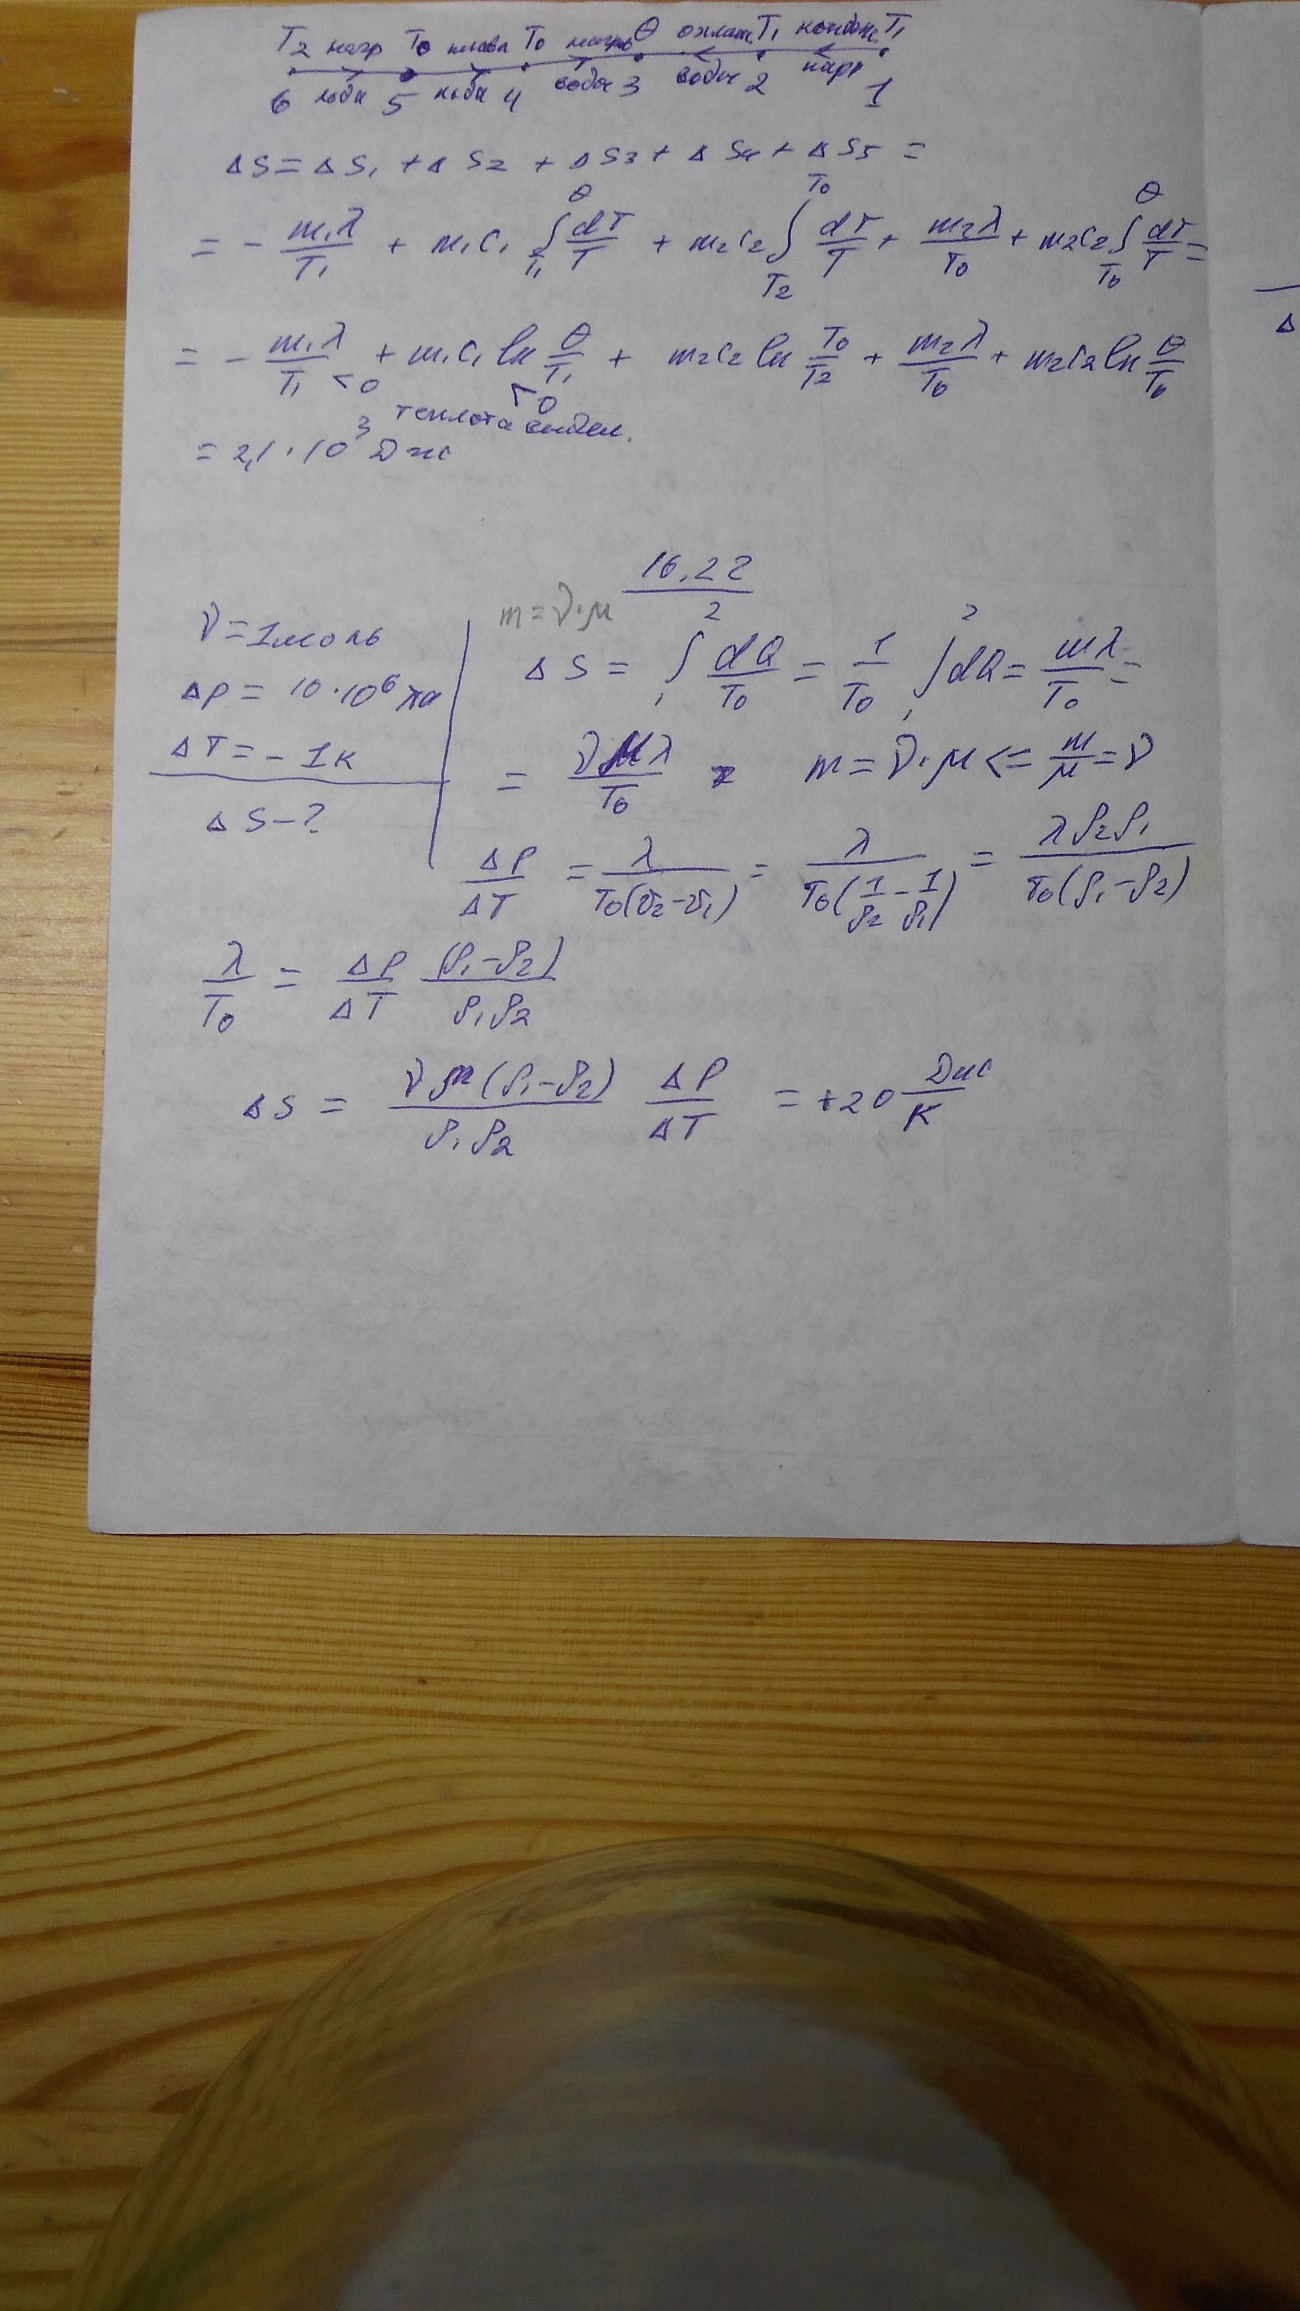 T₂ нагр T₀ плавл T₀ нагрев θ охлаж T₁ конденс T₁
6 льда 5 льда 4 воды 3 воды 2 пара 1
ΔS = ΔS₁ + ΔS₂ + ΔS₃ + ΔS₄ + ΔS₅ =
= - m₁λ/T₁ + m₁c₁ ∫_{T₁}^{θ} dT/T + m₂c₂ ∫_{T₂}^{T₀} dT/T + m₂λ/T₀ + m₂c₂ ∫_{T₀}^{θ} dT/T =
= - m₁λ/T₁ + m₁c₁ ln θ/T₁ + m₂c₂ ln T₀/T₂ + m₂λ/T₀ + m₂c₂ ln θ/T₀
<0 <0
теплота выдел.
= 2,1·10³ Дж
16.22
ν = 1 моль
m = ν·μ
ΔS = ∫₁² dQ/T₀ = 1/T₀ ∫₁² dQ = mλ/T₀ =
Δp = 10·10⁶ Па
ΔT = -1 К
= νμλ/T₀ m = ν·μ <= m/μ = ν
ΔS - ?
ΔP/ΔT = λ/T₀(v₂-v₁) = λ/T₀(1/ρ₂ - 1/ρ₁) = λρ₂ρ₁/T₀(ρ₁-ρ₂)
λ/T₀ = ΔP/ΔT (ρ₁-ρ₂)/ρ₁ρ₂
ΔS = νμ(ρ₁-ρ₂)/ρ₁ρ₂ ΔP/ΔT = +20 Дж/К
Δ